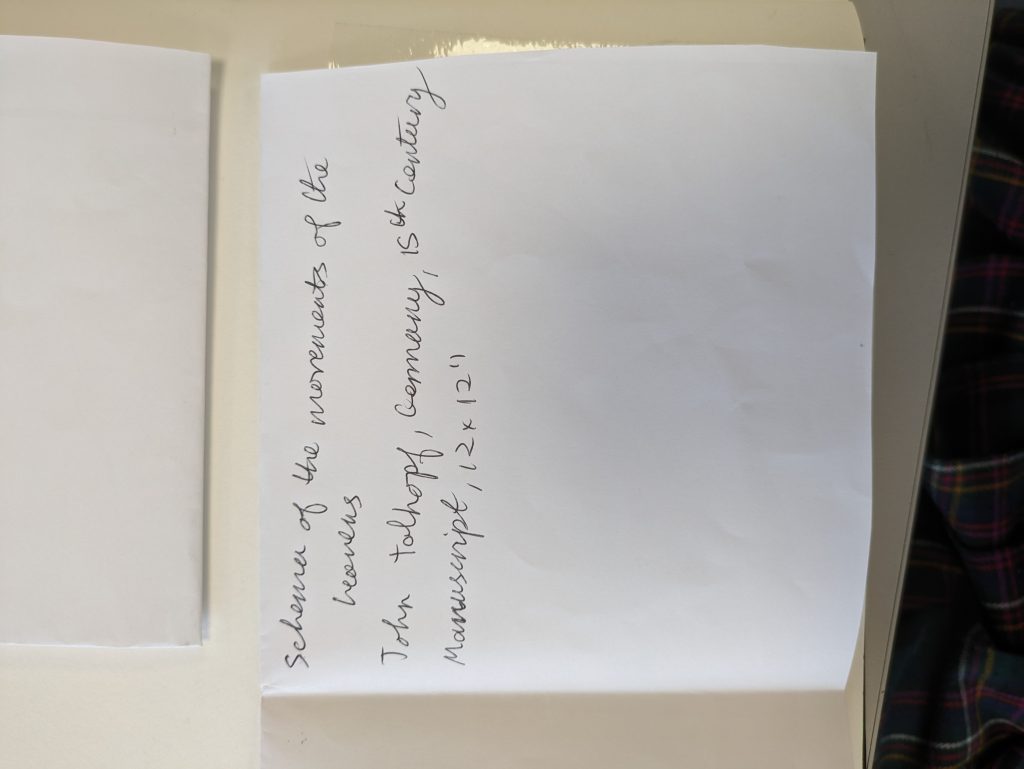 Schema of the movements of the
heavens
John Tolhopf, Germany, 15th Century
Manuscript, 12 x 12"